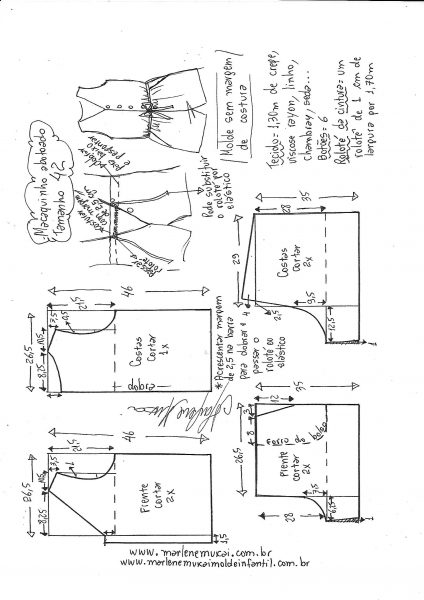 Macaquinho abotoado
Tamanho 42
Molde sem margem
de costura
Tecido: 1,30m de crepe,
viscose rayon, linho,
chambray, seda...
Botões = 6
Rolotê da cintura = um
rolotê de 1 cm de
largura por 1,70m
Pode substituir
o rolotê por
elástico
46
21,5
3,5
0,5
10,5
26,5
8,25
Costas
cortar
1x
dobra
* Acrescentar margem
de 2,5 na barra
para dobrar e
passar o
rolotê ou
elástico
35
28
29
4
2,5
9,5
12,5
1
Costas
cortar
2x
46
21,5
3,5
1
10,5
26,5
8,25
1,5
Frente
cortar
2x
35
12
3
8
26,5
forro do
bolso
Frente
cortar
2x
3,5
6,25
28
1
www.marlenemukai.com.br
www.marlenemukaimoldeinfantil.com.br